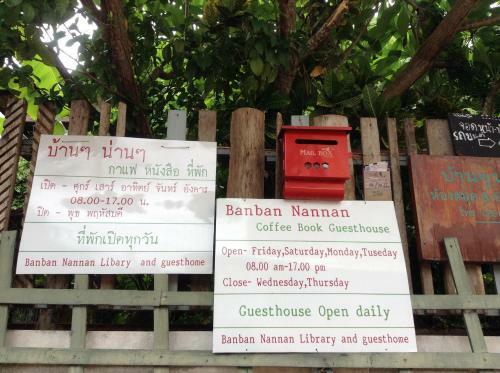 บ้านๆ น่านๆ
กาแฟ หนังสือ ที่พัก
เปิด - ศุกร์ เสาร์ อาทิตย์ จันทร์ อังคาร
08.00-17.00 น.
ปิด - พุธ พฤหัสบดี
ที่พักเปิดทุกวัน
Banban Nannan Libary and guesthome
MAIL BOX
Banban Nannan
Coffee Book Guesthouse
Open- Friday,Saturday,Monday,Tuseday
08.00 am-17.00 pm
Close- Wednesday,Thursday
Guesthouse Open daily
Banban Nannan Library and guesthome
บ้านๆ
ห้องสมุด